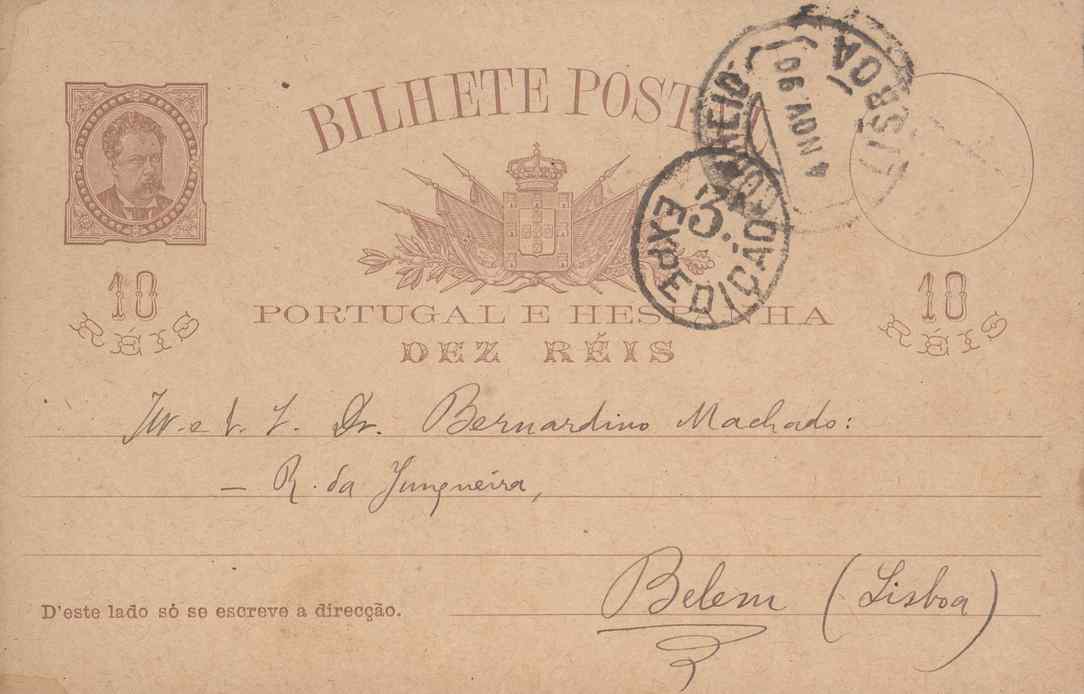 BILHETE POSTAL
LISBOA
CORREIO
4 NOV 90
3.ª
EXPEDIÇÃO
10
RÉIS
10
RÉIS
PORTUGAL E HESPANHA
DEZ RÉIS
Dr. Bernardino Machado:
– R. da Junqueira,
Belem (Lisboa)
D'este lado só se escreve a direcção.